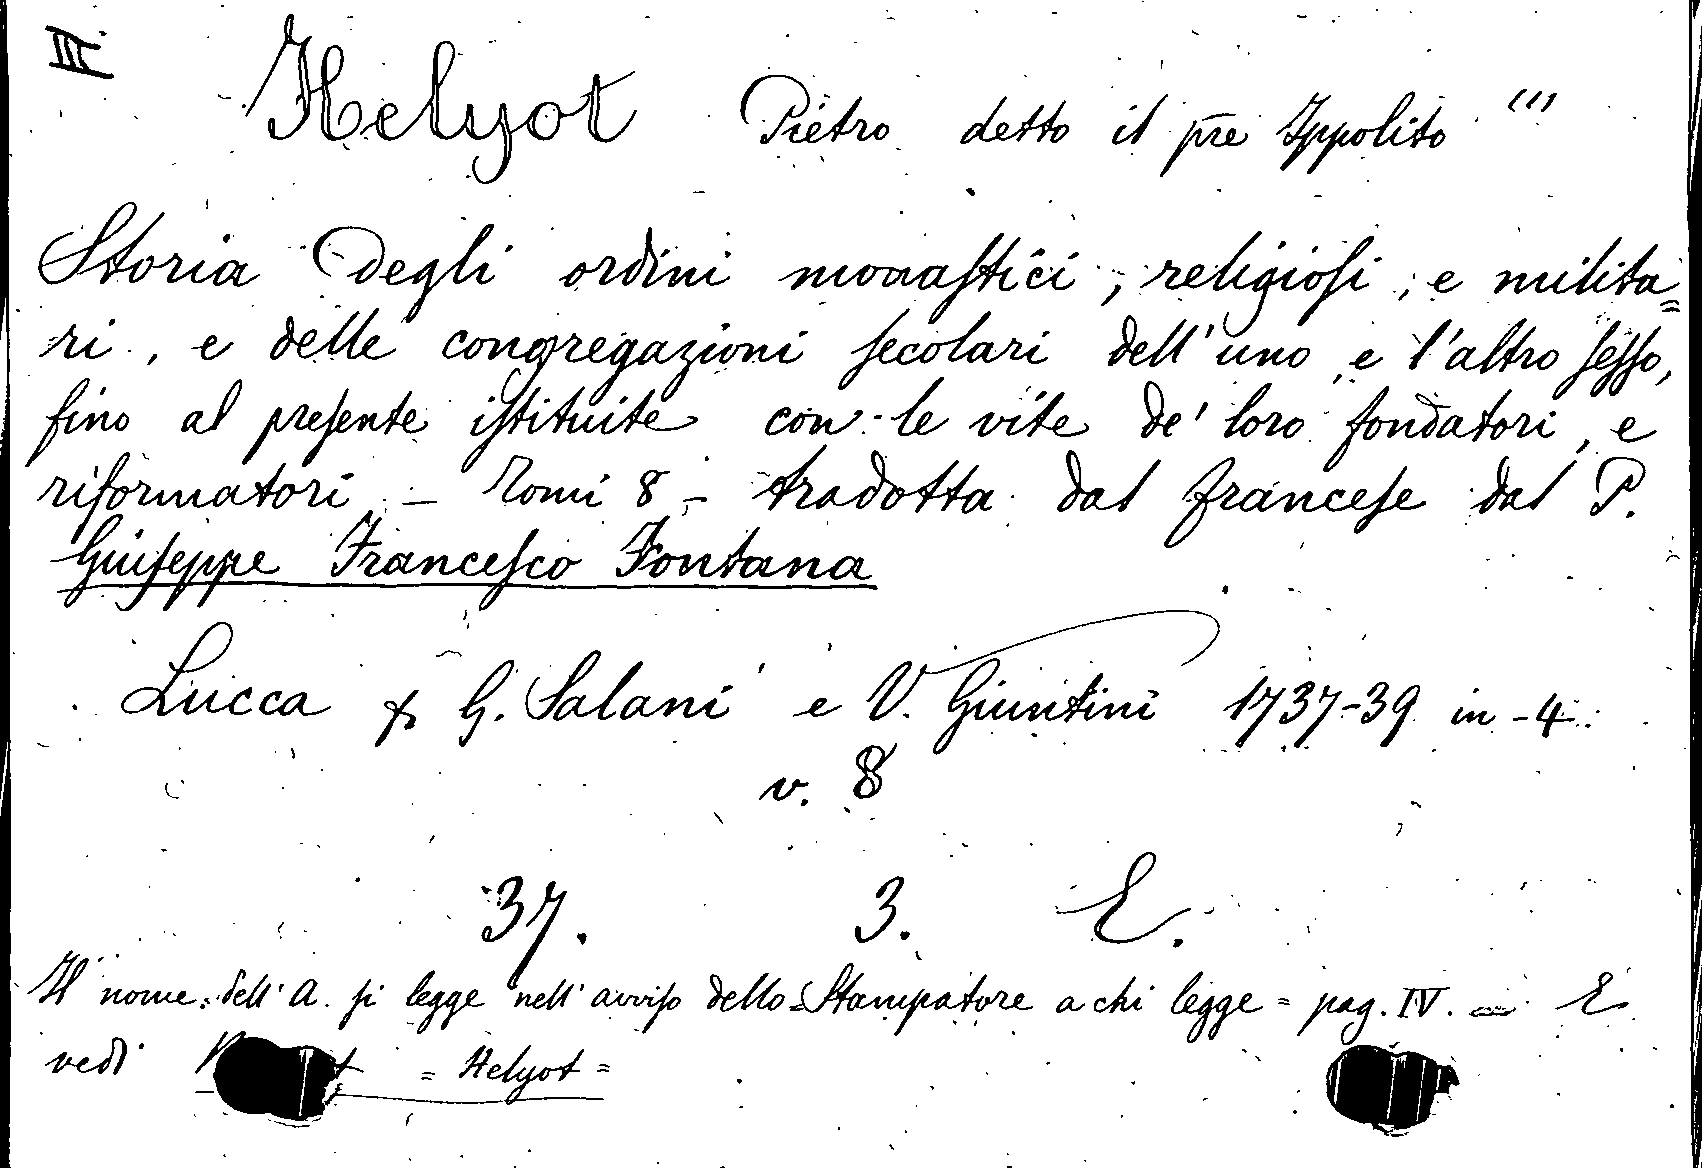 III.
Helyot Pietro detto il pre Ippolito (1)
Storia degli ordini monastici, religiosi, e milita=
ri, e delle congregazioni secolari dell'uno, e l'altro sesso,
fino al presente istituite con le vite de' loro fondatori, e
riformatori - Tomi 8 - tradotta dal francese dal P.
Giuseppe Francesco Fontana
Lucca G. Salani e V. Giuntini 1737-39 in-4.
v. 8
37. 3. E.
Il nome dell'A. si legge nell'avviso dello Stampatore a chi legge = pag. IV. = E
vedi = Helyot =